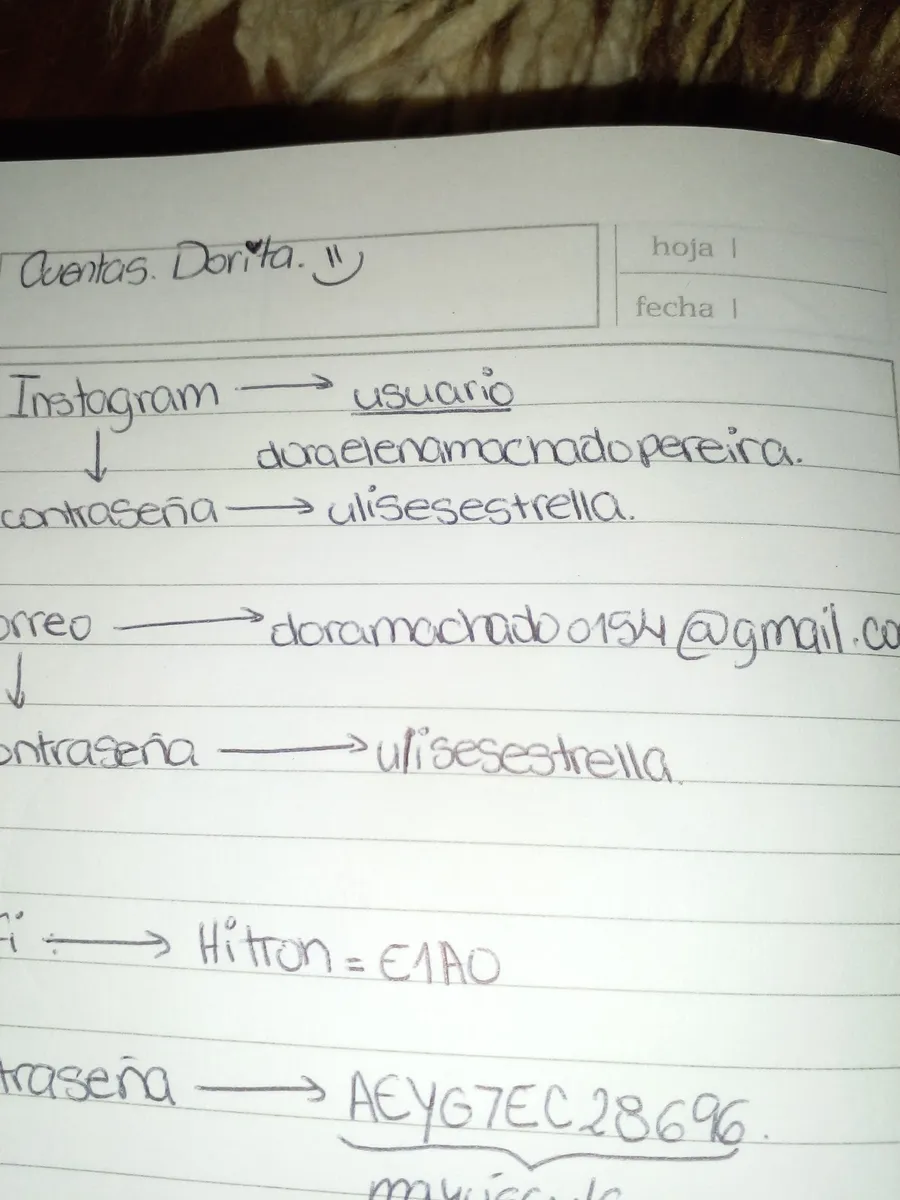 Cuentas. Dorita.
hoja |
fecha |
Instagram → usuario
↓ doraelenamachadopereira.
contraseña → ulisesestrella.
orreo → doramachado0154@gmail.co
↓
ontraseña → ulisesestrella.
fi → Hitron = E1A0
traseña → AEYG7EC28696.